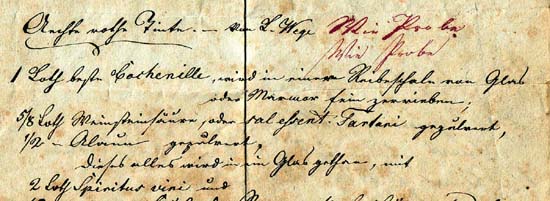 Aechte rothe Tinte. — von L. Wege Wie Probe
Wie Probe
1 Loth beste Cochenille, wird in einer Reibeschale von Glas
oder Marmor fein zerrieben,
5/8 Loth Weinsteinsäure, oder sal essent. Tartari gepulvert,
1/2 — Alaun gepulvert,
dieses alles wird in ein Glas gethan, mit
2 Loth Spiritus vini und